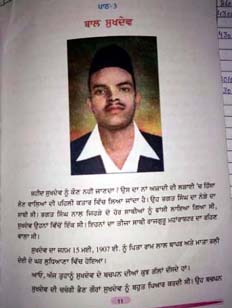 ਪਾਠ-3
ਬਾਲ ਸੁਖਦੇਵ
ਸ਼ਹੀਦ ਸੁਖਦੇਵ ਨੂੰ ਕੌਣ ਨਹੀਂ ਜਾਣਦਾ! ਉਸ ਦਾ ਨਾਂ ਅਜ਼ਾਦੀ ਦੀ ਲੜਾਈ 'ਚ ਹਿੱਸਾ
ਲੈਣ ਵਾਲਿਆਂ ਦੀ ਪਹਿਲੀ ਕਤਾਰ ਵਿੱਚ ਲਿਆ ਜਾਂਦਾ ਹੈ। ਉਹ ਭਗਤ ਸਿੰਘ ਦਾ ਨੇੜੇ ਦਾ
ਸਾਥੀ ਸੀ। ਭਗਤ ਸਿੰਘ ਨਾਲ ਜਿਹੜੇ ਦੋ ਹੋਰ ਸਾਥੀਆਂ ਨੂੰ ਫਾਂਸੀ ਲਾਇਆ ਗਿਆ ਸੀ,
ਸੁਖਦੇਵ ਉਹਨਾਂ ਵਿੱਚੋਂ ਇੱਕ ਸੀ। ਇਹਨਾਂ ਦਾ ਤੀਜਾ ਸਾਥੀ ਰਾਜਗੁਰੂ ਮਹਾਂਰਾਸ਼ਟਰ ਦਾ ਰਹਿਣ
ਵਾਲਾ ਸੀ।
ਸੁਖਦੇਵ ਦਾ ਜਨਮ 15 ਮਈ, 1907 ਈ. ਨੂੰ ਪਿਤਾ ਰਾਮ ਲਾਲ ਥਾਪਰ ਅਤੇ ਮਾਤਾ ਰਲੀ
ਦੇਈ ਦੇ ਘਰ ਲੁਧਿਆਣਾ ਵਿੱਚ ਹੋਇਆ।
ਆਓ, ਅੱਜ ਤੁਹਾਨੂੰ ਸੁਖਦੇਵ ਦੇ ਬਚਪਨ ਦੀਆਂ ਕੁਝ ਗੱਲਾਂ ਦੱਸਦੇ ਹਾਂ।
ਸੁਖਦੇਵ ਦੀ ਚਚੇਰੀ ਭੈਣ ਸੁਖਦੇਵ ਨੂੰ ਬਹੁਤ ਪਿਆਰ ਕਰਦੀ ਸੀ। ਉਹ ਬਚਪਨ
11